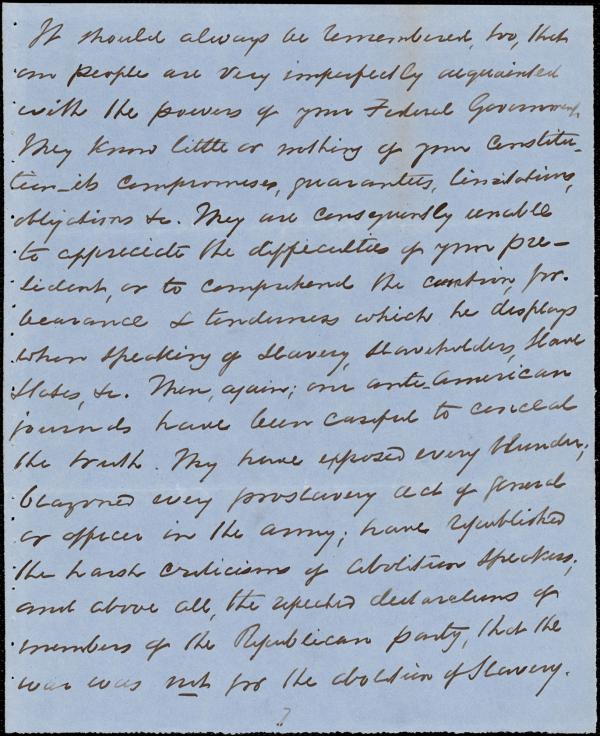 It should always be remembered, too, that
our people are very imperfectly acquainted
with the powers of your Federal Government.
They know little or nothing of your Constitu-
tion - its compromises, guarantees, limitations,
obligations &c. They are consequently unable
to appreciate the difficulties of your pre-
sident, or to comprehend the caution, for-
bearance & tenderness which he displays
when speaking of Slavery, Slaveholders, Slave
States, &c. Then, again; our anti-American
journals have been careful to conceal
the truth. They have exposed every blunder;
blazoned every proslavery act of general
or officer in the army; have republished
the harsh criticisms of Abolition speakers;
and above all, the repeated declarations of
members of the Republican party, that the
war was not for the abolition of Slavery.